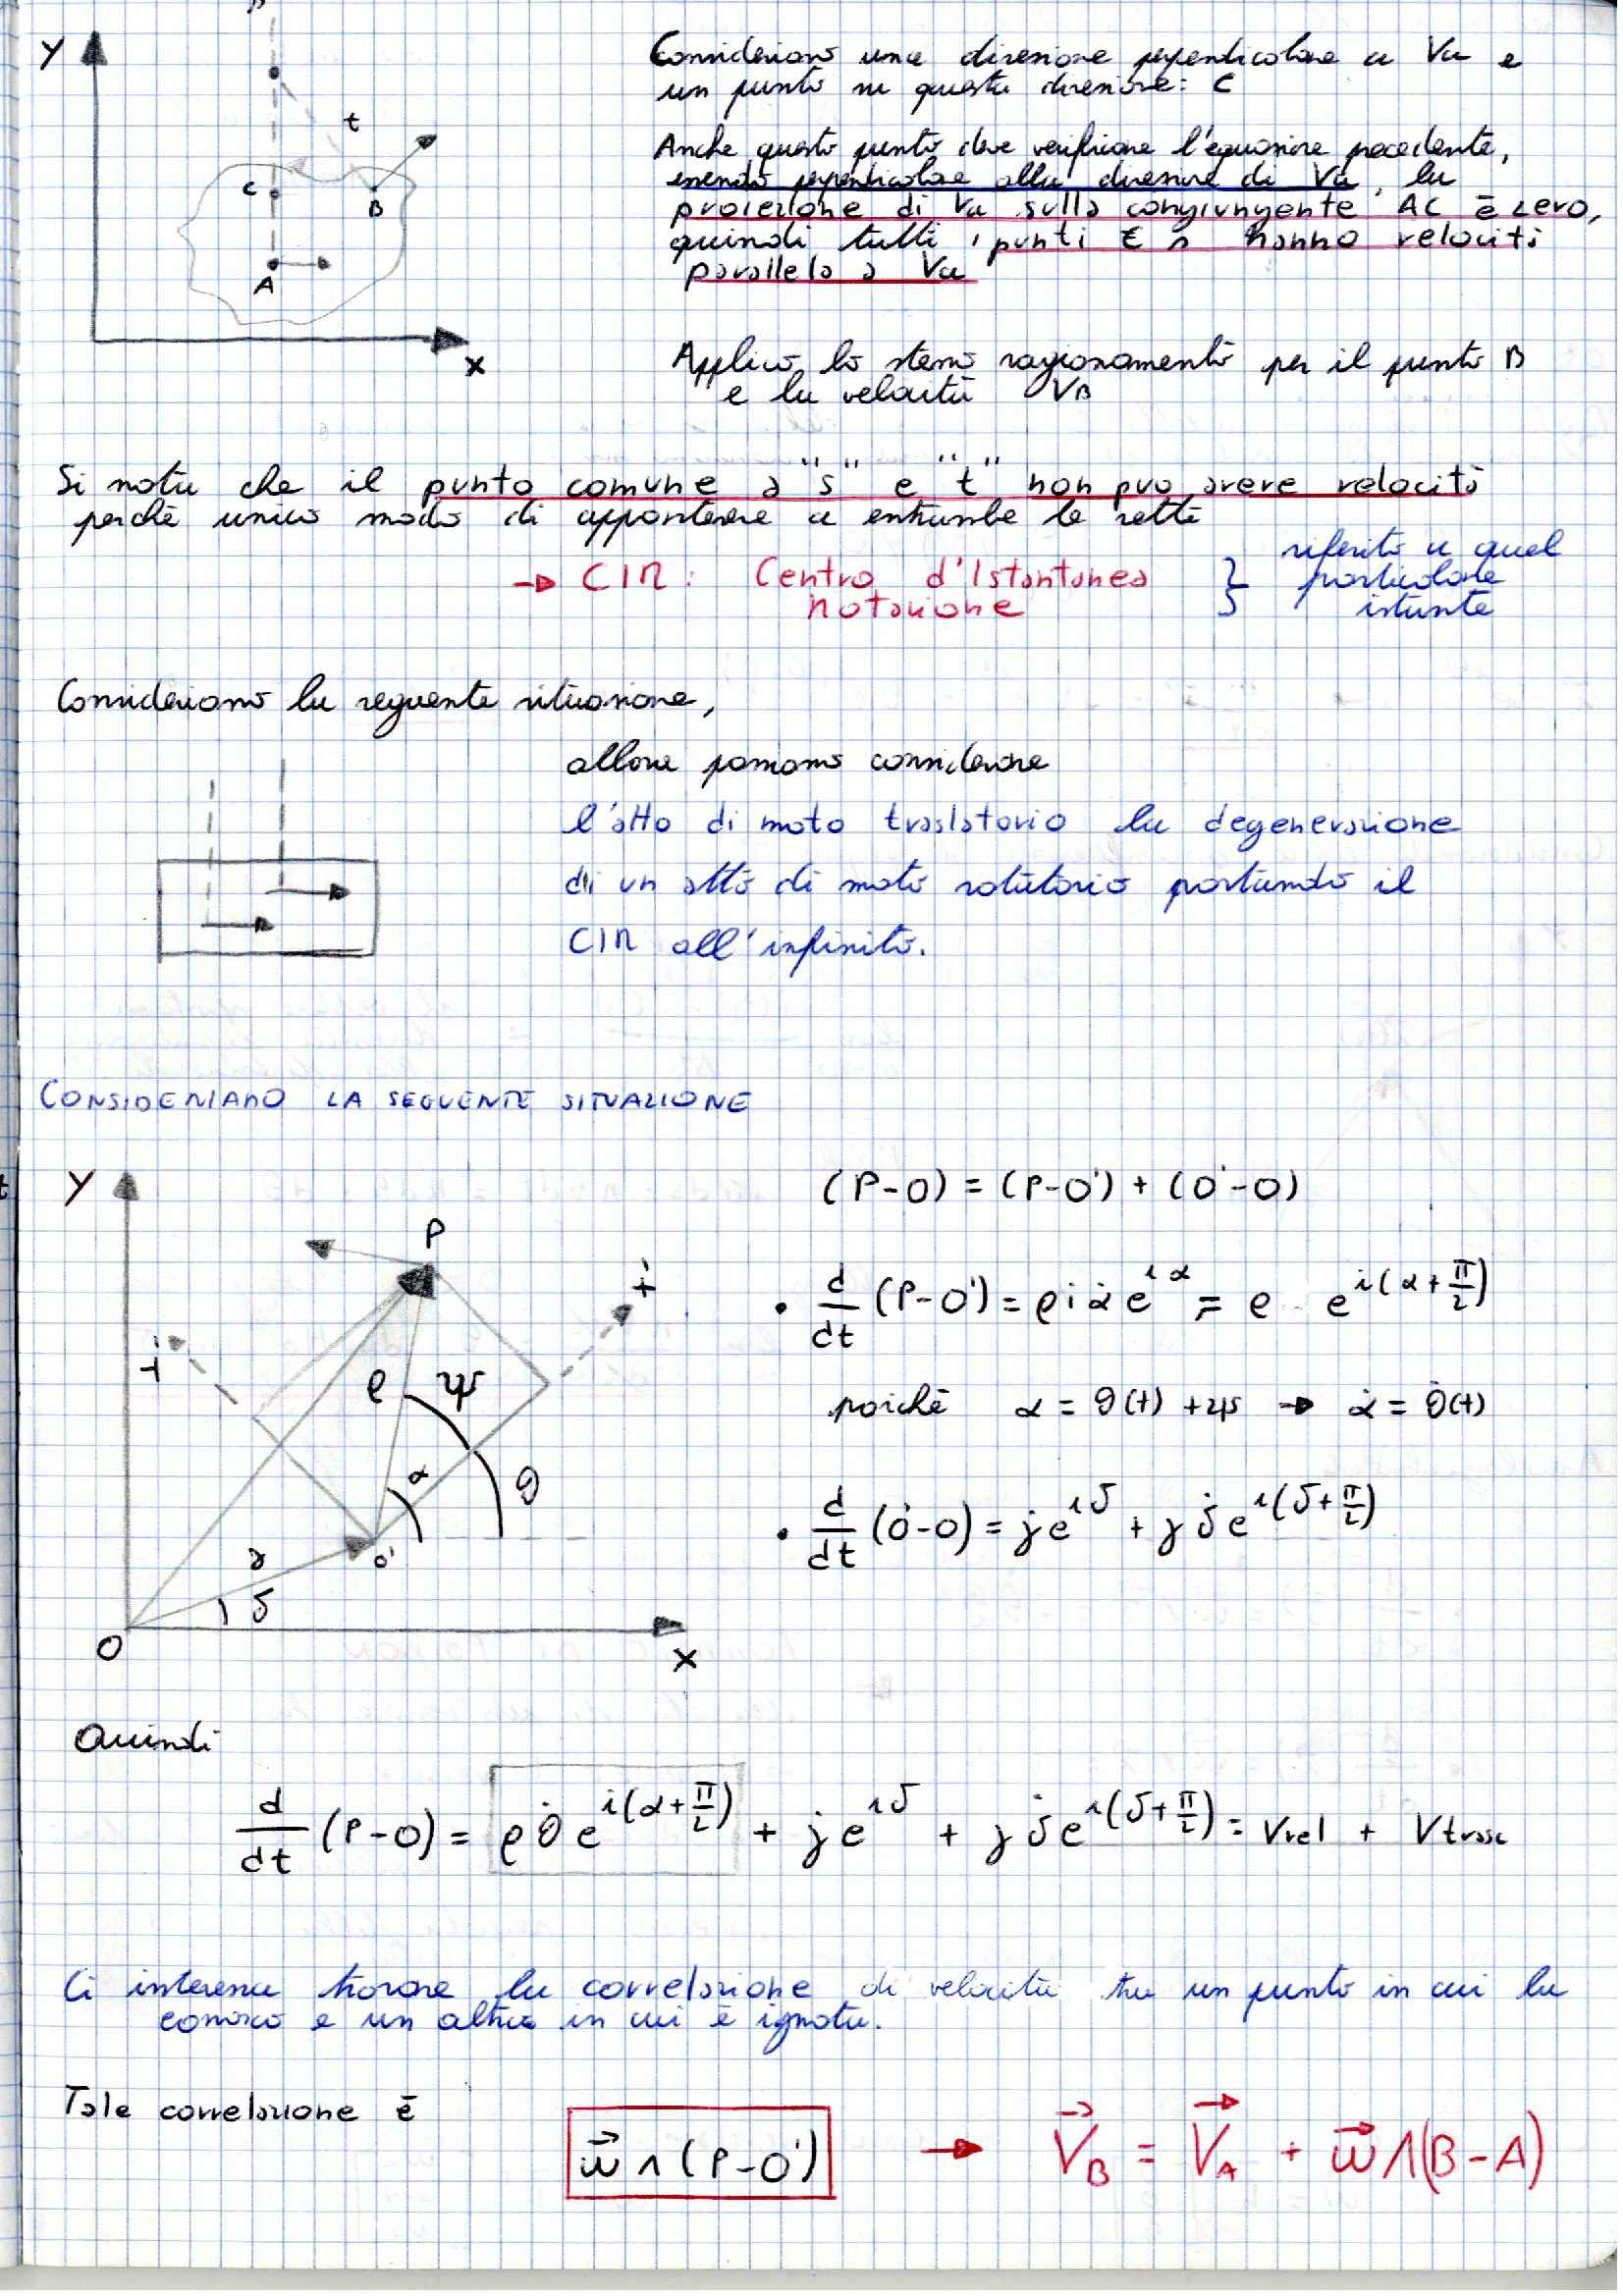 Consideriamo una direzione perpendicolare a Va e
un punto su questa direzione: C
Anche questo punto deve verificare l'equazione precedente,
essendo perpendicolare alla direzione di Va, la
proiezione di Va sulla congiungente AC è zero,
quindi tutti i punti ∈ s hanno velocità
parallela a Va
Y
t
C
B
A
x
Applico lo stesso ragionamento per il punto B
e la velocità VB
Si nota che il punto comune a "s" e "t" non può avere velocità
perchè unico modo di appartenere a entrambe le rette
→ CIR: Centro d'Istantanea
Rotazione
} riferito a quel
particolare
istante
Consideriamo la seguente situazione,
allora possiamo considerare
l'atto di moto traslatorio la degenerazione
di un atto di moto rotatorio portando il
CIR all'infinito.
CONSIDERIAMO LA SEGUENTE SITUAZIONE
Y
P
i
j
ρ
ψ
α
ϑ
γ
δ
O'
O
x
(P-O) = (P-O') + (O'-O)
• d/dt (P-O') = ρ i α̇ e^{iα} = ρ e^{i(α + π/2)}
poichè α = ϑ(t) + ψ → α̇ = ϑ̇(t)
• d/dt (O'-O) = γ̇ e^{iδ} + γ δ̇ e^{i(δ + π/2)}
Quindi
d/dt (P-O) = ρ ϑ̇ e^{i(α + π/2)} + γ̇ e^{iδ} + γ δ̇ e^{i(δ + π/2)} = Vrel + Vtrasc
Ci interessa trovare la correlazione di velocità tra un punto in cui la
conosco e un altro in cui è ignota.
Tale correlazione è
ω⃗ ∧ (P-O') → V⃗B = V⃗A + ω⃗ ∧ (B-A)